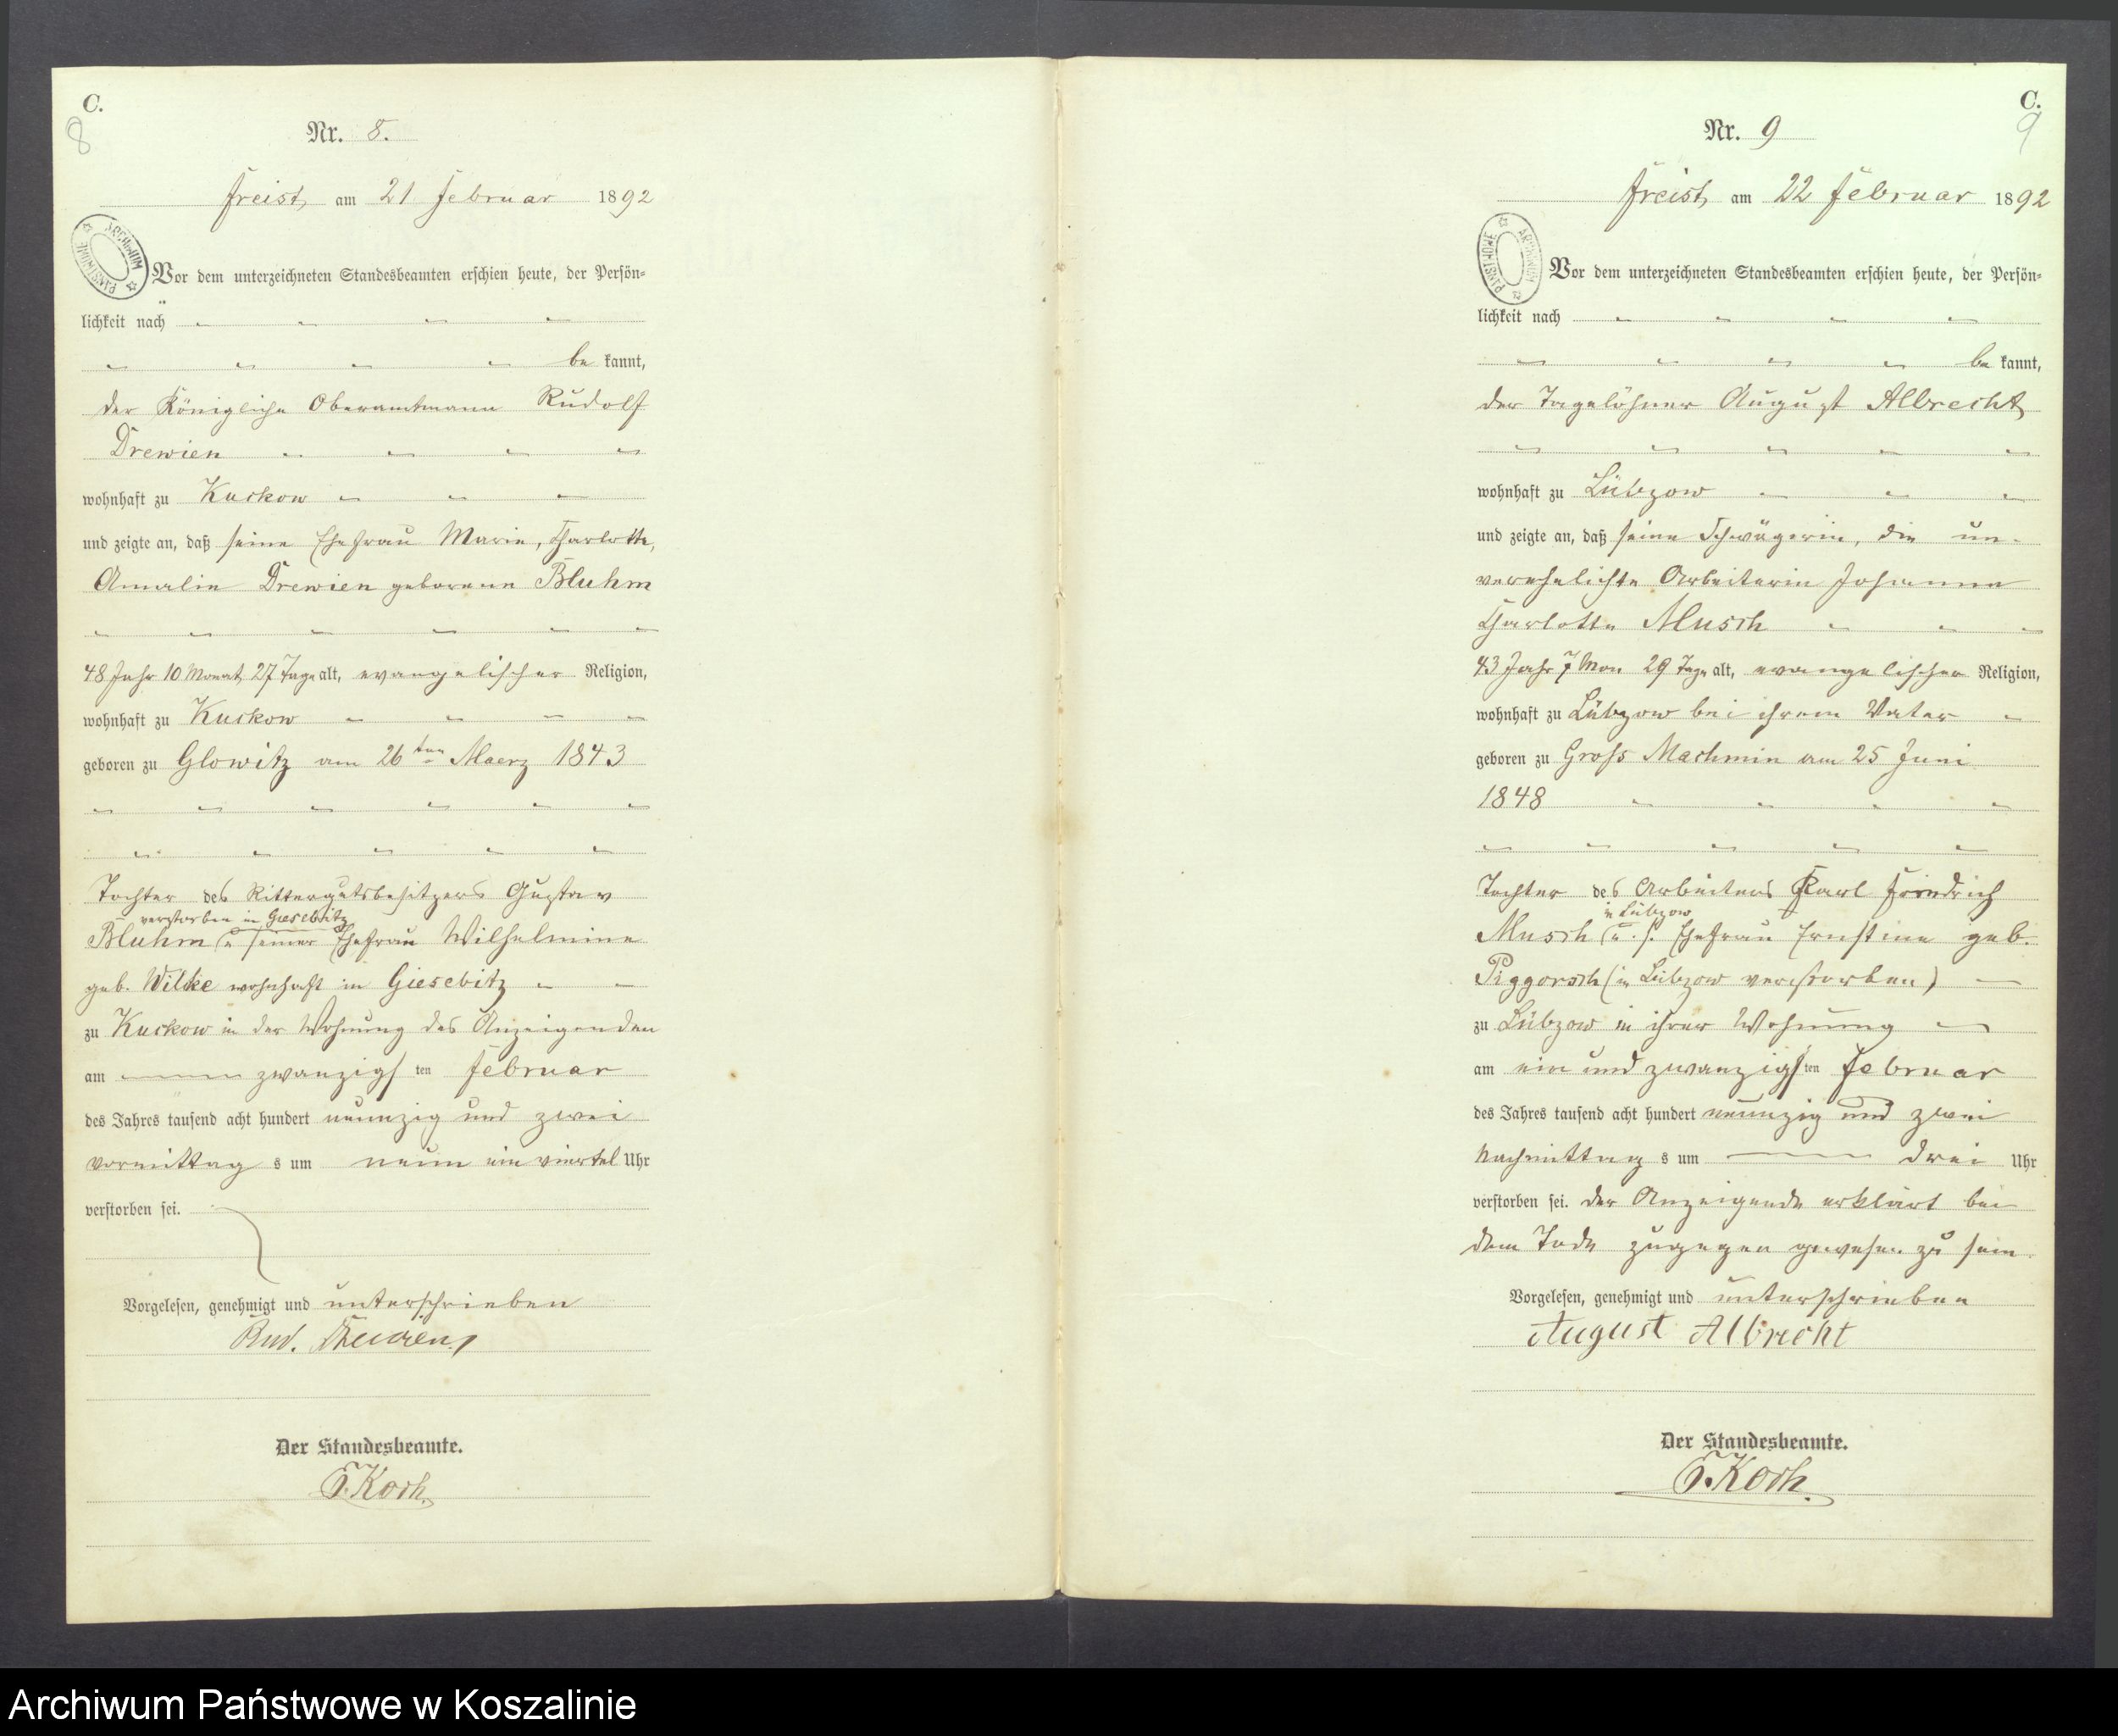 C.
8
Nr. 8.
Freist, am 21 Februar 1892
ARCHIWUM PAŃSTWOWE
Vor dem unterzeichneten Standesbeamten erschien heute, der Persön-
lichkeit nach
be kannt,
der Königliche Oberamtmann Rudolf
Drewien
wohnhaft zu Kuckow
und zeigte an, daß seine Ehefrau Marie, Charlotte,
Amalie Drewien geborene Bluhm
48 Jahr 10 Monat 27 Tage alt, evangelischer Religion,
wohnhaft zu Kuckow
geboren zu Glowitz am 26ten Maerz 1843
Tochter des Rittergutsbesitzers Gustav
verstorben in Giesebitz
Bluhm u seiner Ehefrau Wilhelmine
geb. Wilke wohnhaft in Giesebitz
zu Kuckow in der Wohnung des Anzeigenden
am zwanzigs ten Februar
des Jahres tausend acht hundert neunzig und zwei
vormittag s um neun ein viertel Uhr
verstorben sei.
Vorgelesen, genehmigt und unterschrieben
Rud. Drewien
Der Standesbeamte.
Koch.
C.
9
Nr. 9
Freist, am 22 Februar 1892
ARCHIWUM PAŃSTWOWE
Vor dem unterzeichneten Standesbeamten erschien heute, der Persön-
lichkeit nach
be kannt,
der Tagelöhner August Albrecht
wohnhaft zu Lübzow
und zeigte an, daß seine Schwägerin, die un-
verehelichte Arbeiterin Johanne
Charlotte Musch
43 Jahr 7 Mon 29 Tage alt, evangelischer Religion,
wohnhaft zu Lübzow bei ihrem Vater
geboren zu Groß Machmin am 25 Juni
1848
Tochter des Arbeiters Karl Friedrich
in Lübzow
Musch u. s. Ehefrau Ernstine geb.
Piggorsch (in Lübzow verstorben)
zu Lübzow in ihrer Wohnung
am ein und zwanzigs ten Februar
des Jahres tausend acht hundert neunzig und zwei
nachmittag s um drei Uhr
verstorben sei. Der Anzeigende erklärt bei
dem Tode zugegen gewesen zu sein.
Vorgelesen, genehmigt und unterschrieben
August Albrecht
Der Standesbeamte.
Koch.
Archiwum Państwowe w Koszalinie